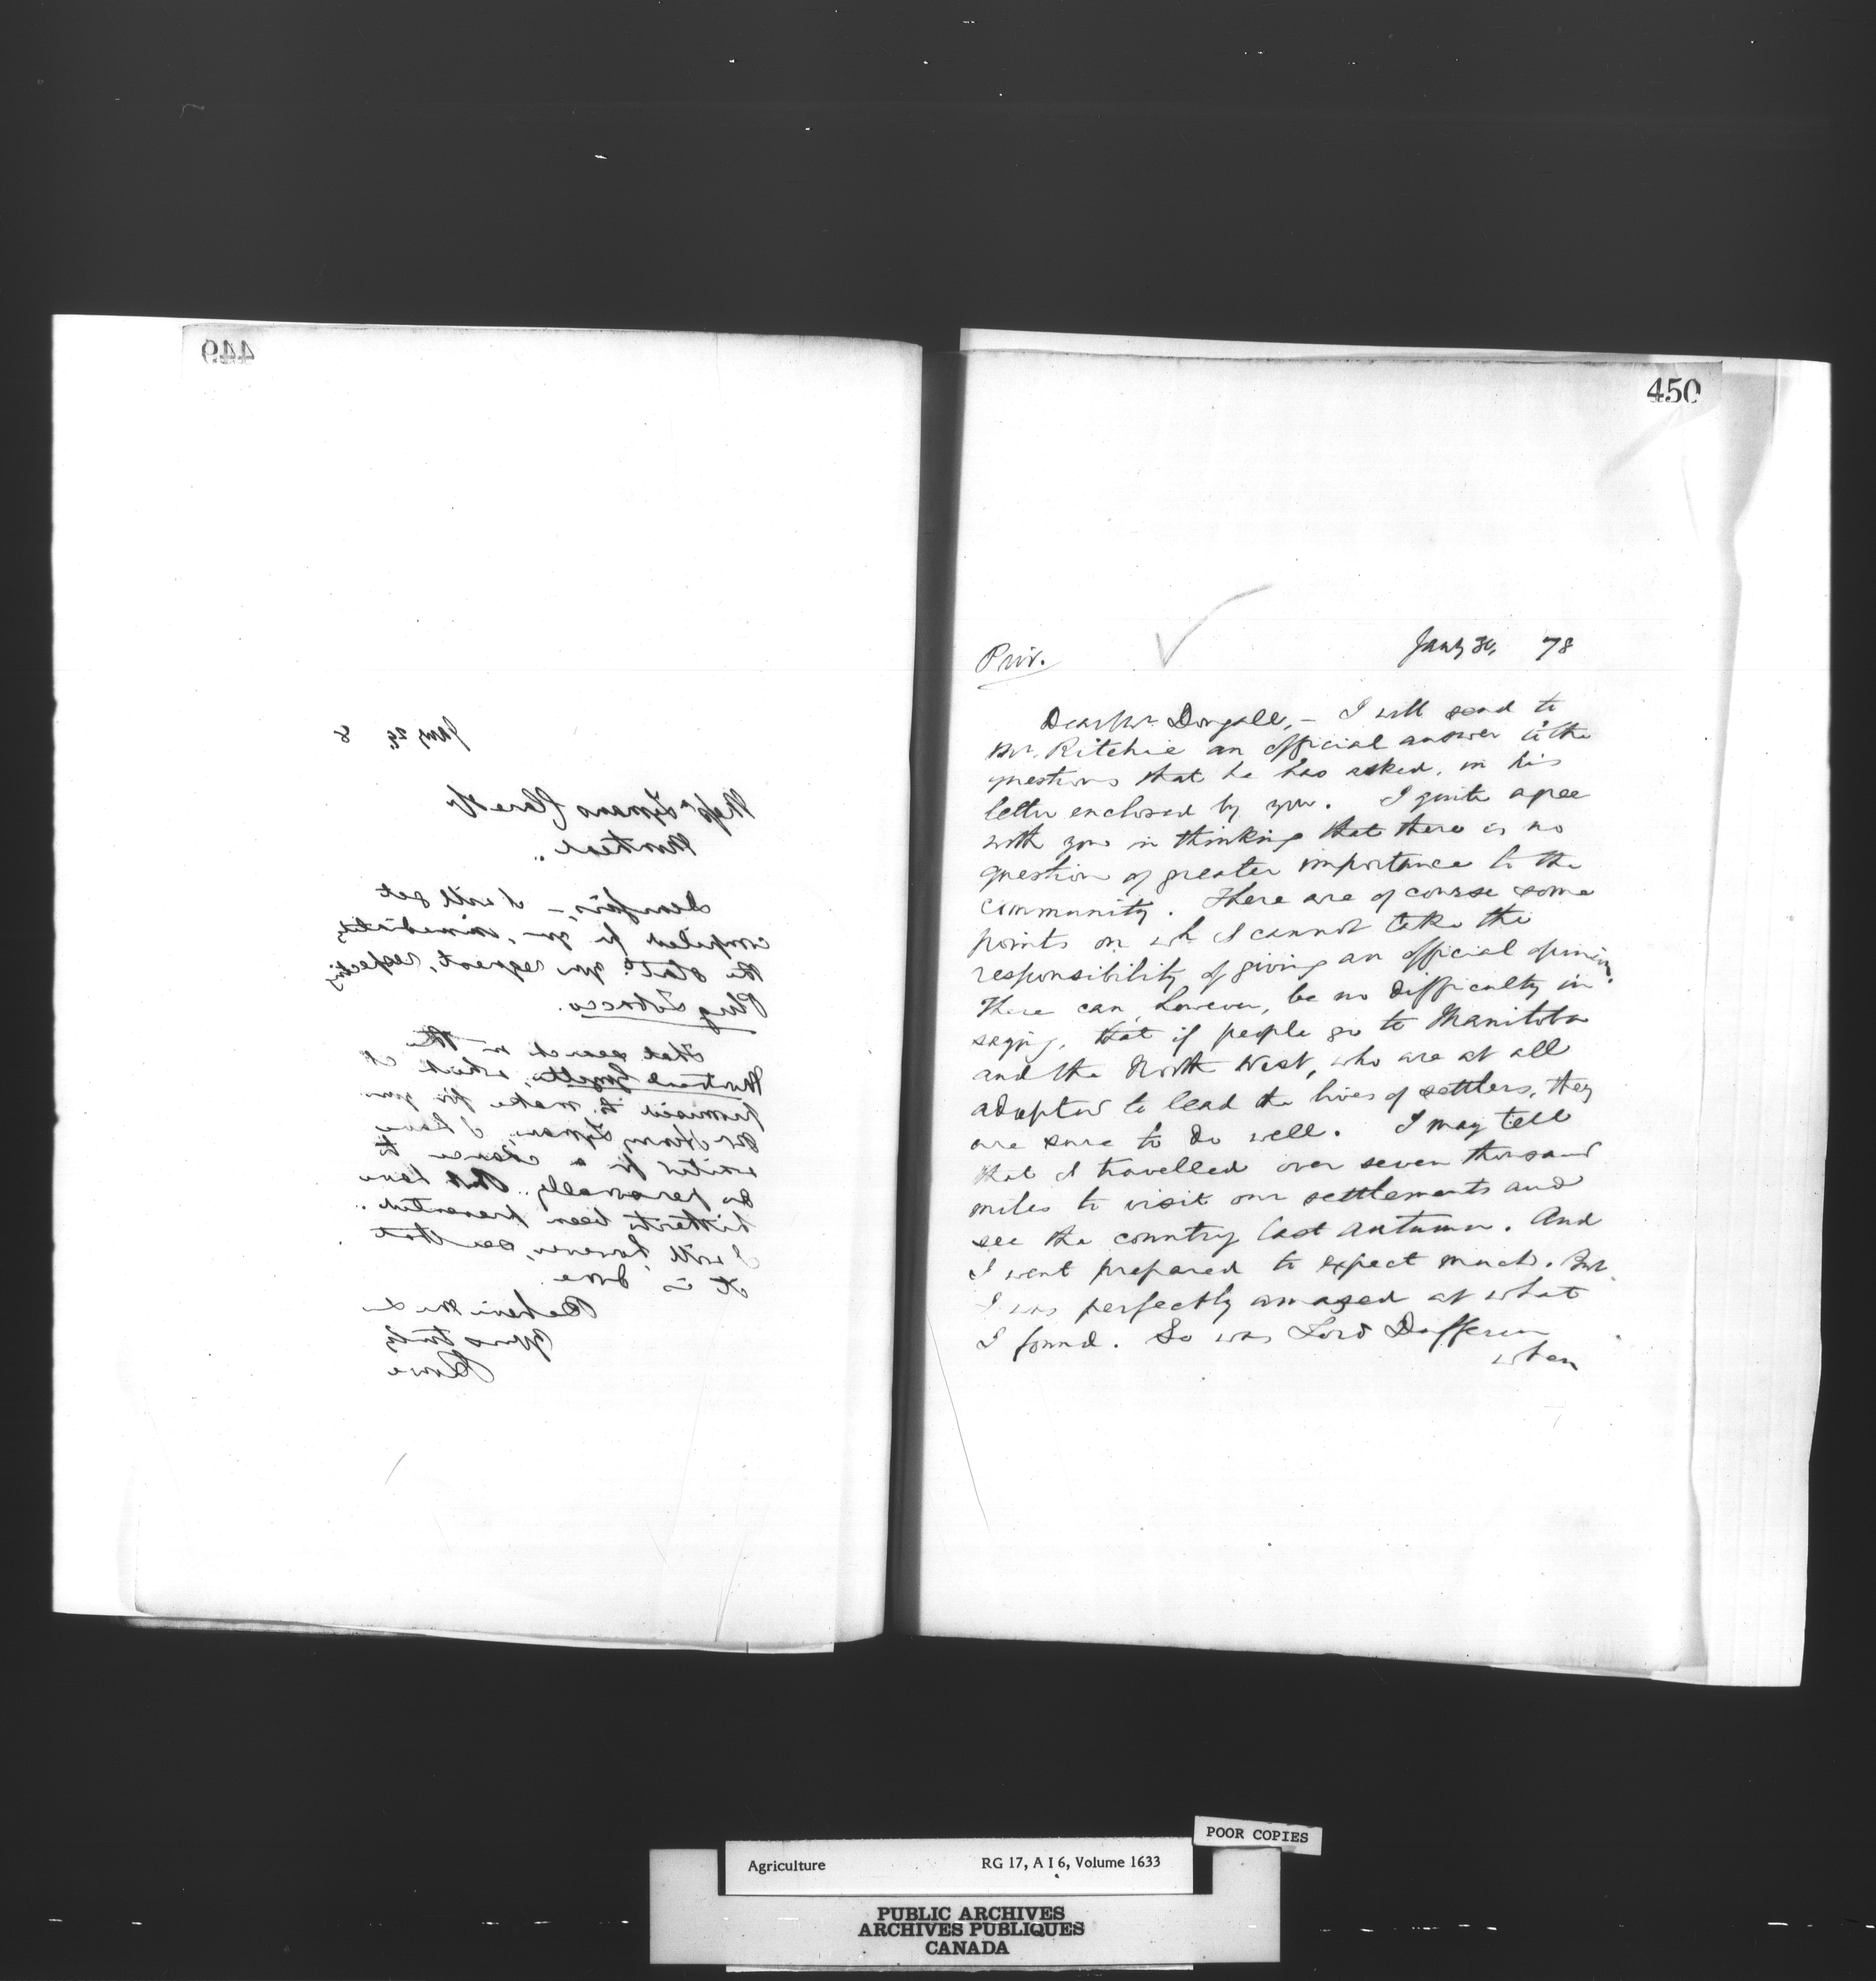 449
Jany 29, 8
Messrs Lymans Clare & Co
Montreal
Dear Sirs, – I will get
compiled for you, immediately
the statt. you request, respecting
Plug Tobacco.
That search in the
Montreal Gazette, which I
promised to make for your
Mr Henry Lyman, I have
waited for a chance to
do personally. But have
hitherto been prevented.
I will, however, see that
it is done
Believe me to
Yours truly
450
Priv.
Jany 30, 78
Dear Mr Dougall, – I will send to
Mr. Ritchie an official answer to the
questions that he has asked, in his
letter enclosed by you. I quite agree
with you in thinking that there is no
question of greater importance to the
community. There are of course some
points on wh I cannot take the
responsibility of giving an official opinion.
There can, however, be no difficulty in
saying, that if people go to Manitoba
and the North West, who are at all
adapted to lead the lives of settlers, they
are sure to do well. I may tell
that I travelled over seven thousand
miles to visit our settlements and
see the country last autumn. And
I went prepared to expect much. But
I was perfectly amazed at what
I found. So was Lord Dufferin
when
POOR COPIES
Agriculture RG 17, A I 6, Volume 1633
PUBLIC ARCHIVES
ARCHIVES PUBLIQUES
CANADA